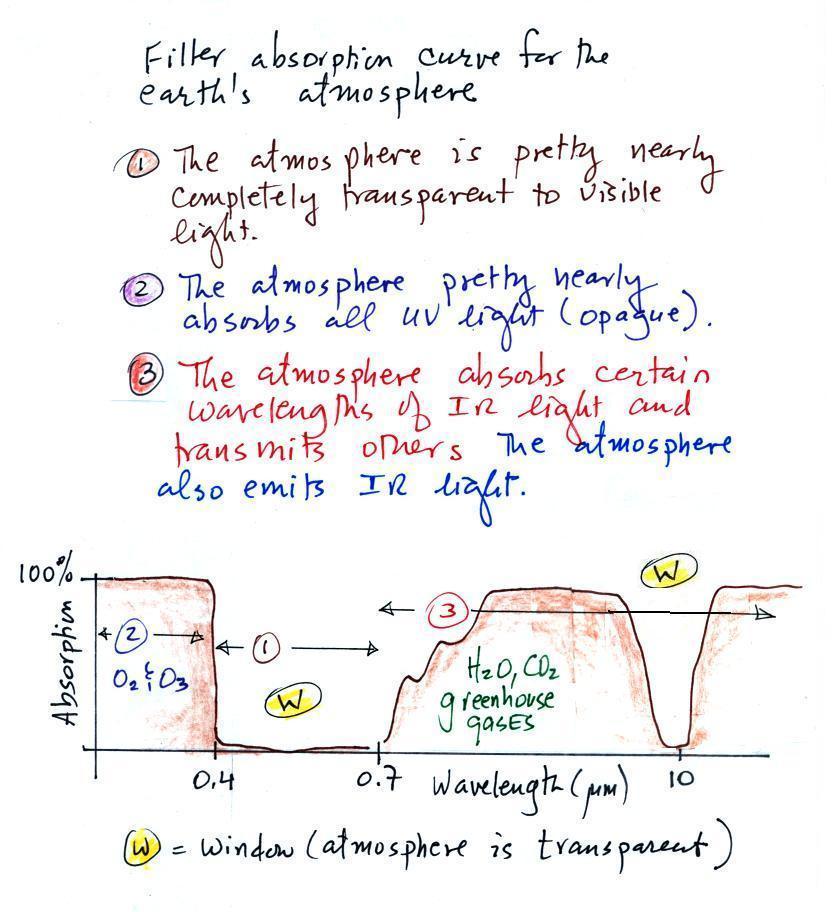 Filter absorption curve for the
earth's atmosphere
1 The atmosphere is pretty nearly
completely transparent to visible
light.
2 The atmosphere pretty nearly
absorbs all UV light (opaque).
3 The atmosphere absorbs certain
wavelengths of IR light and
transmits others The atmosphere
also emits IR light.
100%
W
3
2
1
Absorption
O2 & O3
W
H2O, CO2
greenhouse
gases
0.4
0.7
Wavelength (μm)
10
W = window (atmosphere is transparent)